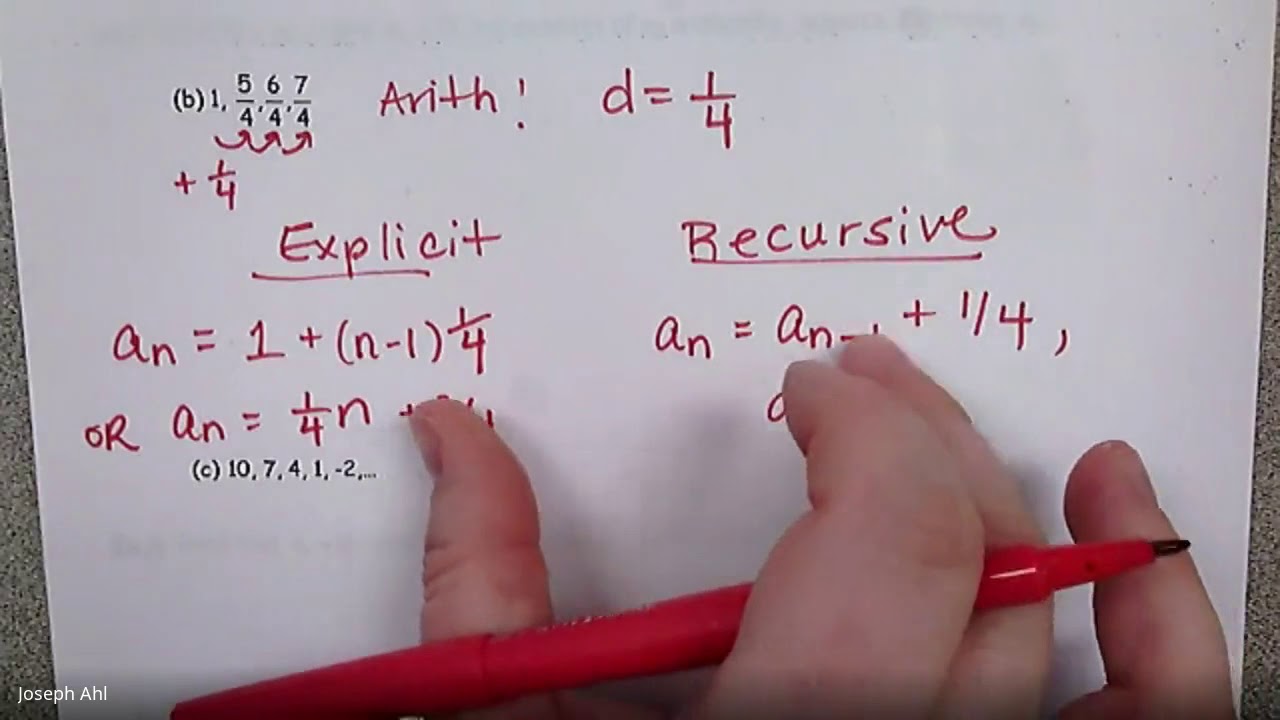 (b) 1, 5/4, 6/4, 7/4 Arith! d = 1/4
+ 1/4
Explicit Recursive
an = 1 + (n-1) 1/4 an = an-1 + 1/4,
OR an = 1/4 n +
(c) 10, 7, 4, 1, -2,...
Joseph Ahl